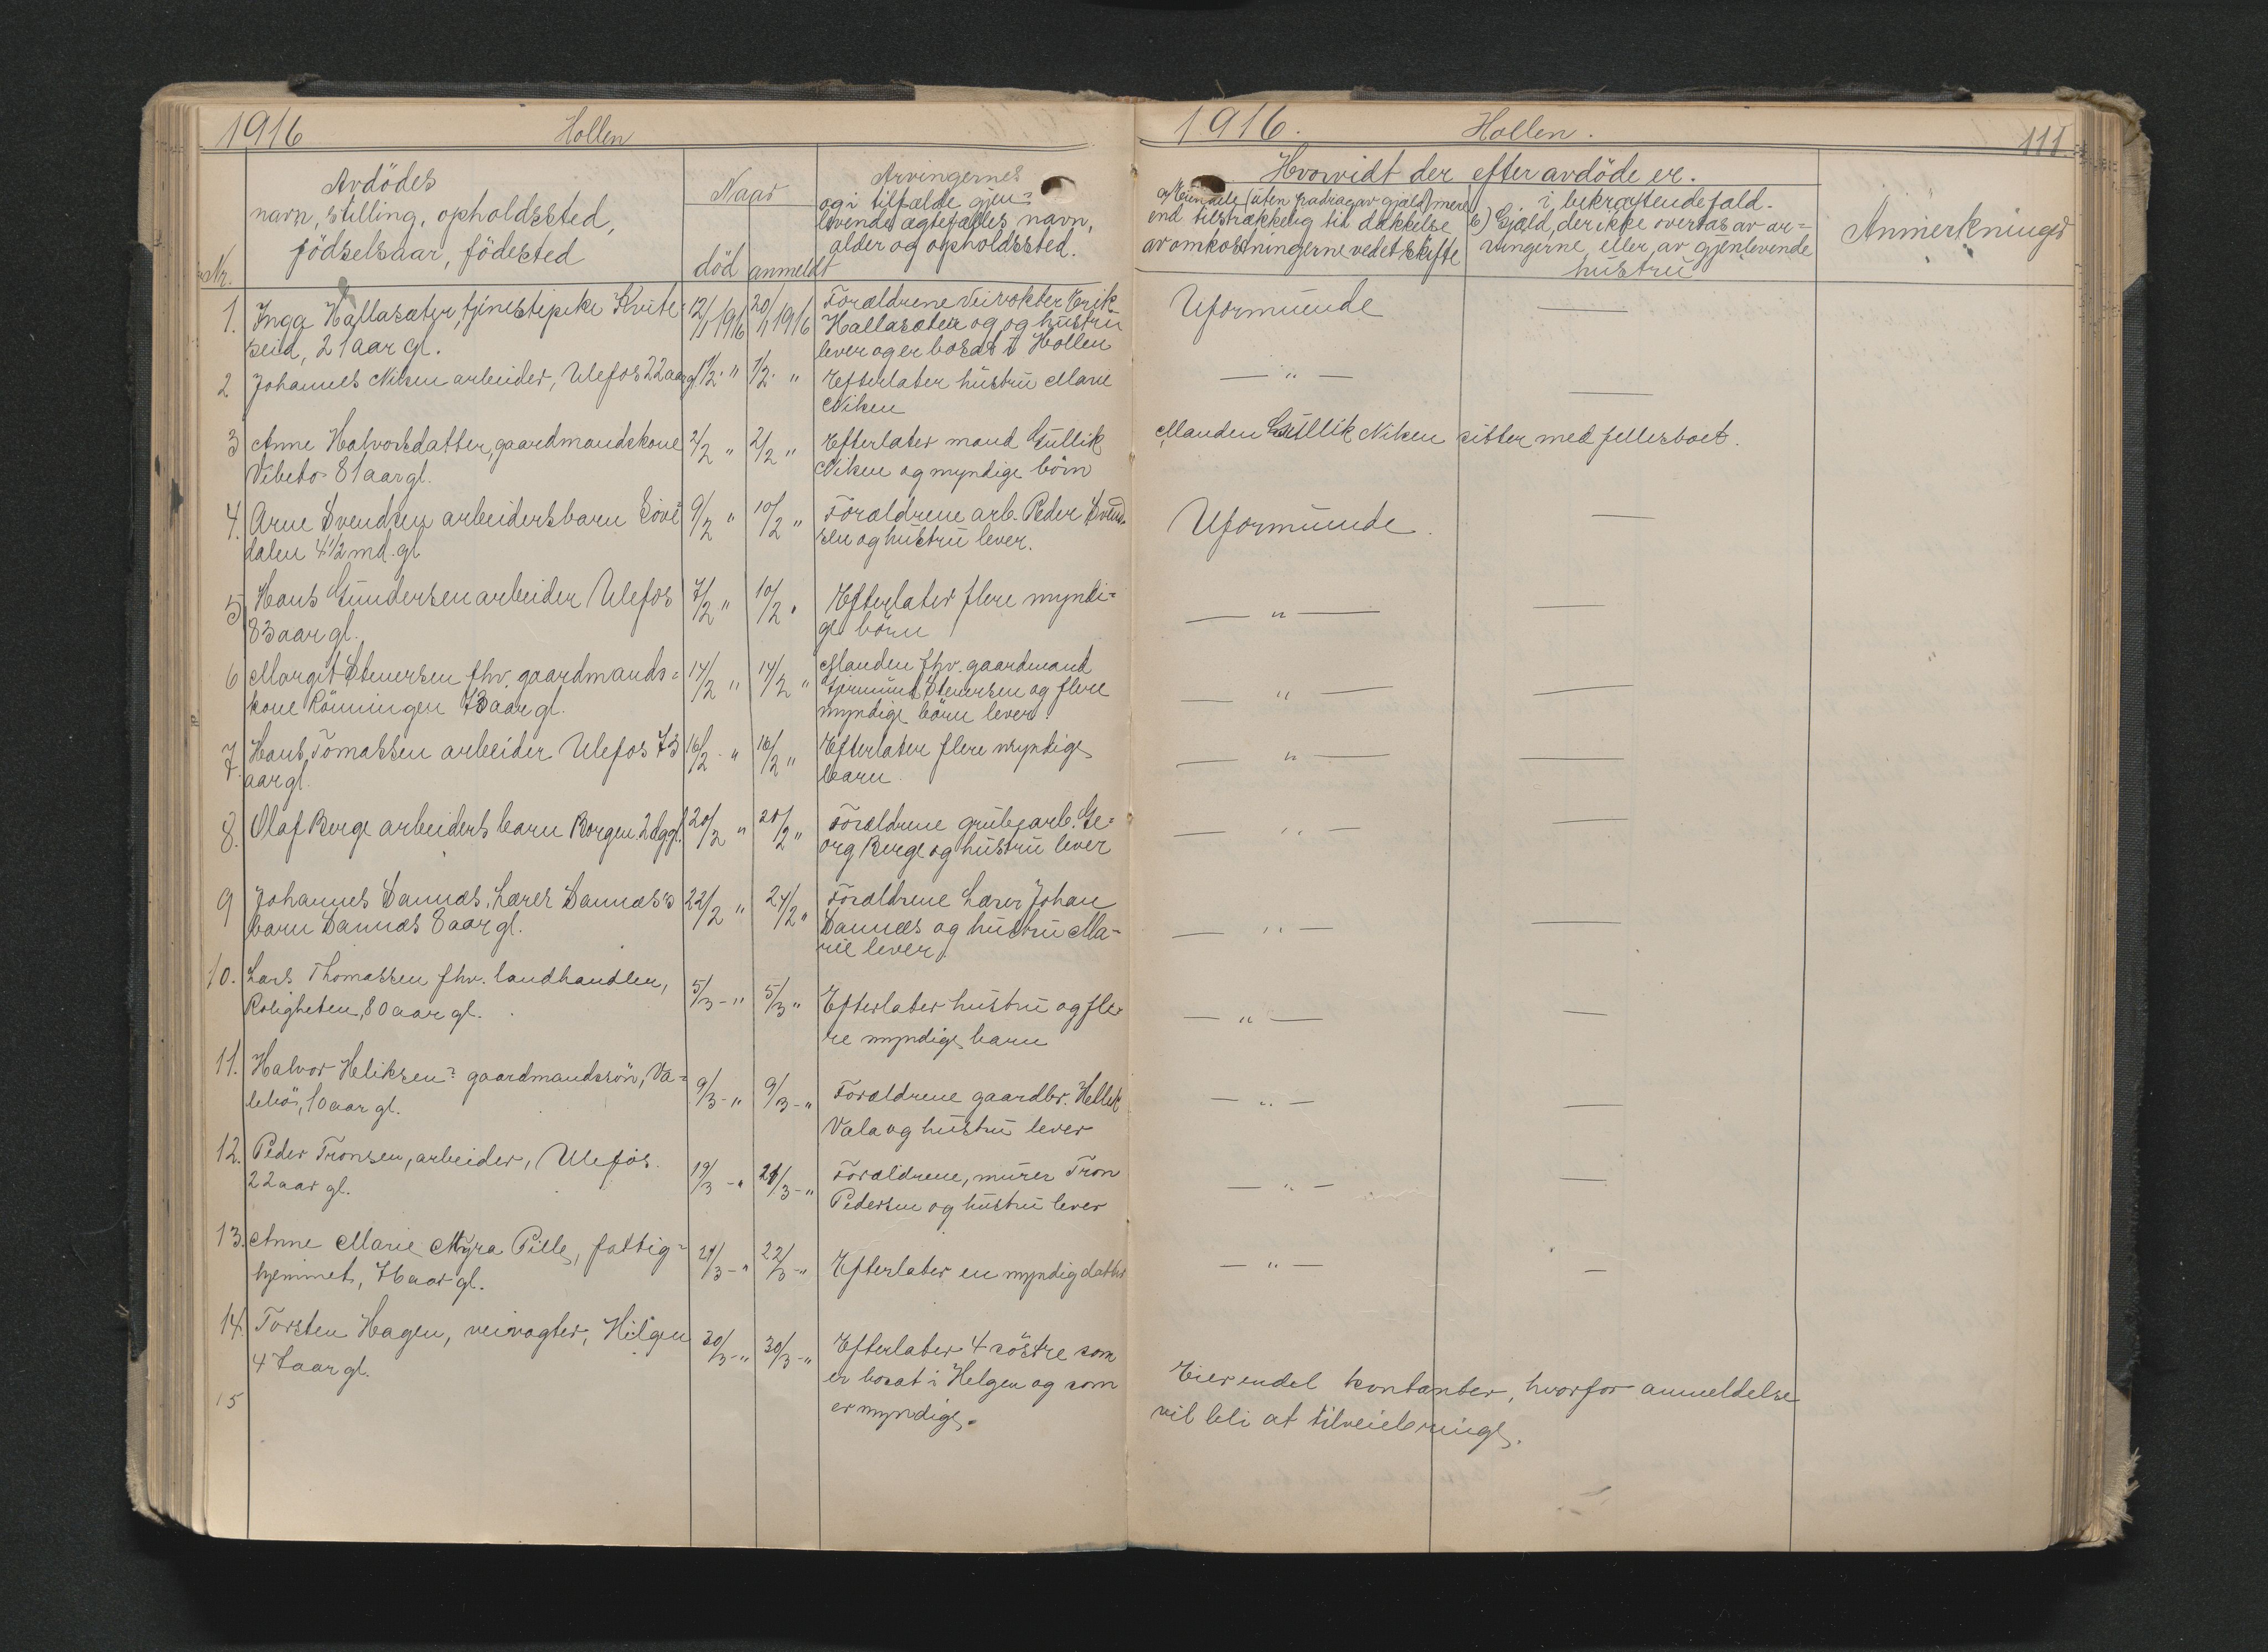 1916 Hollen
Avdödes
navn, stilling, opholdssted,
födselsaar, födested
Nr.
Naar
död anmeldt
Arvingernes
og i tilfælde gjen=
levende ægtefælles navn,
alder og opholdssted.
1. Inga Hallasæter, tjenestepike Kvite- 12/1 1916 20/1 1916 Forældrene Veivokter Erik
seid, 21 aar gl. Hallasæter og og hustru
lever og er bosat i Hollen
2 Johannes Niken arbeider, Ulefos 22 aar gl. 1/2 " 1/2 " Efterlater hustru Marie
Niken
3 Anne Halvorsdatter, gaardmandskone 2/2 " 2/2 " Efterlater mand Gullik
Vibeto 81 aar gl. Niken og myndige börn
4. Arne Svendsen arbeidersbarn Sövi= 9/2 " 10/2 " Forældrene arb. Peder Svend-
dalen 4 1/2 md. gl. sen og hustru lever.
5 Hans Gundersen arbeider Ulefos 7/2 " 10/2 " Efterlater flere myndi=
83 aar gl. ge börn
6 Margit Stenersen fhv. gaardmands= 14/2 " 14/2 " Manden fhv. gaardmand
kone Rönningen 73 aar gl. Stenersen og flere
myndige börn lever.
7. Hans Tomassen arbeider Ulefos 73 16/2 - " 16/2 " Efterlater flere myndige
aar gl. barn.
8. Olaf Berge arbeiders barn Borgen 2 dg gl. 20/2 " 20/2 " Forældrene grubearb. Ge=
org Berge og hustru lever
9 Johannes Dannæs, Lærer Dannæs's 22/2 " 24/2 " Forældrene Lærer Johan
barn Dannæs 8 aar gl. Dannæs og hustru Ma-
rie lever
10. Lars Thomassen fhv. landhandler, 5/3 - " 5/3 " Efterlater hustru og fle-
Roligheten, 80 aar gl. re myndige barn
11. Halvor Heliksen? gaardmandssön, Va= 9/3 - " 9/3 - " Forældrene gaardbr. Hellek
lebö, 10 aar gl. Vala og hustru lever
12. Peder Tronsen, arbeider, Ulefos. 19/3 - " 21/3 - " Forældrene, murer Tron
22 aar gl. Pedersen og hustru lever
13. Anne Marie Myra Pille, fattig= 21/3 - " 22/3 - " Efterlater en myndig datter
hjemmet, 76 aar gl.
14. Torsten Hagen, veivogter, Helgen 30/3 - " 30/3 - " Efterlater 4 söstre som
47 aar gl. er bosat i Helgen og som
er myndige.
15
1916. Hollen. 111
Hvorvidt der efter avdöde er.
a) Eiendele (uten fradrag av gjæld) mere
end tilstrækkelig til dækkelse
av omkostningerne ved et skifte
i bekræftende fald.
b) Gjæld, der ikke overtas av ar=
vingerne eller av gjenlevende
hustru
Anmerkninger
Uformuende —
— " — —
Manden Gullik Niken sitter med fellesboet.
Uformuende. —
— " — —
— " — —
— " — —
— " — —
— " — —
— " — —
— " — —
— " — —
— " — —
Eier endel kontanter, hvorfor anmeldelse
vil bli at tilveiebringe.